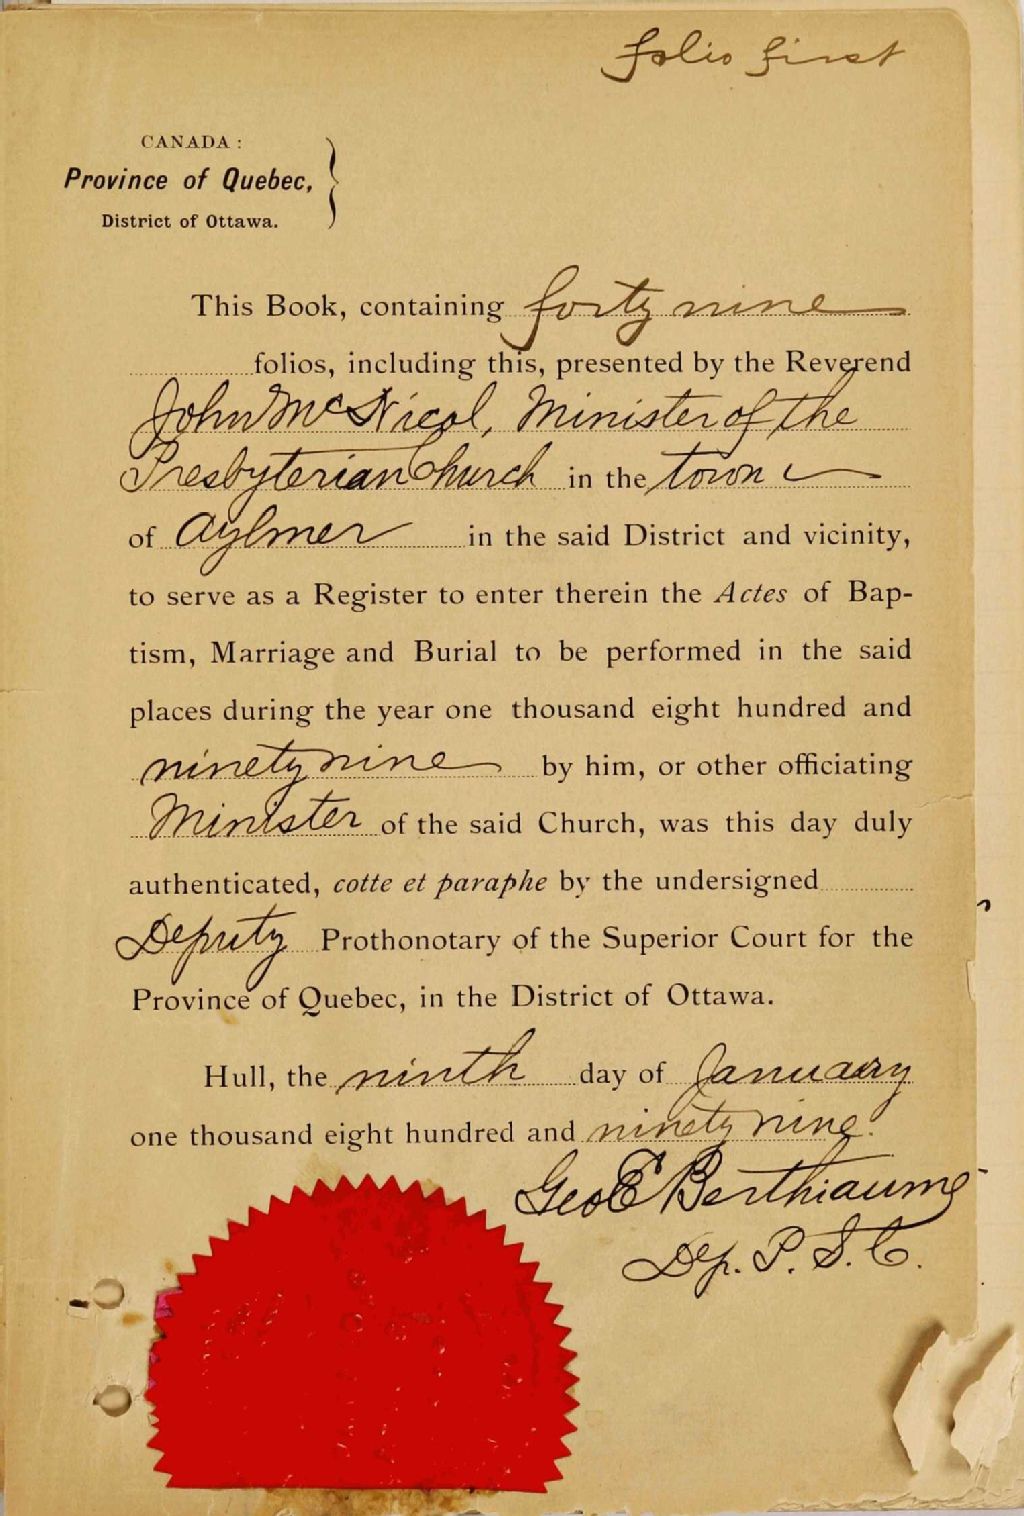 folio first
CANADA :
Province of Quebec,
District of Ottawa.
This Book, containing forty nine
folios, including this, presented by the Reverend
John McNicol, Minister of the
Presbyterian Church in the town
of Aylmer in the said District and vicinity,
to serve as a Register to enter therein the Actes of Bap-
tism, Marriage and Burial to be performed in the said
places during the year one thousand eight hundred and
ninety nine by him, or other officiating
Minister of the said Church, was this day duly
authenticated, cotte et paraphe by the undersigned
Deputy Prothonotary of the Superior Court for the
Province of Quebec, in the District of Ottawa.
Hull, the ninth day of January
one thousand eight hundred and ninety nine.
Geo E Berthiaume
Dep. P. S. C.